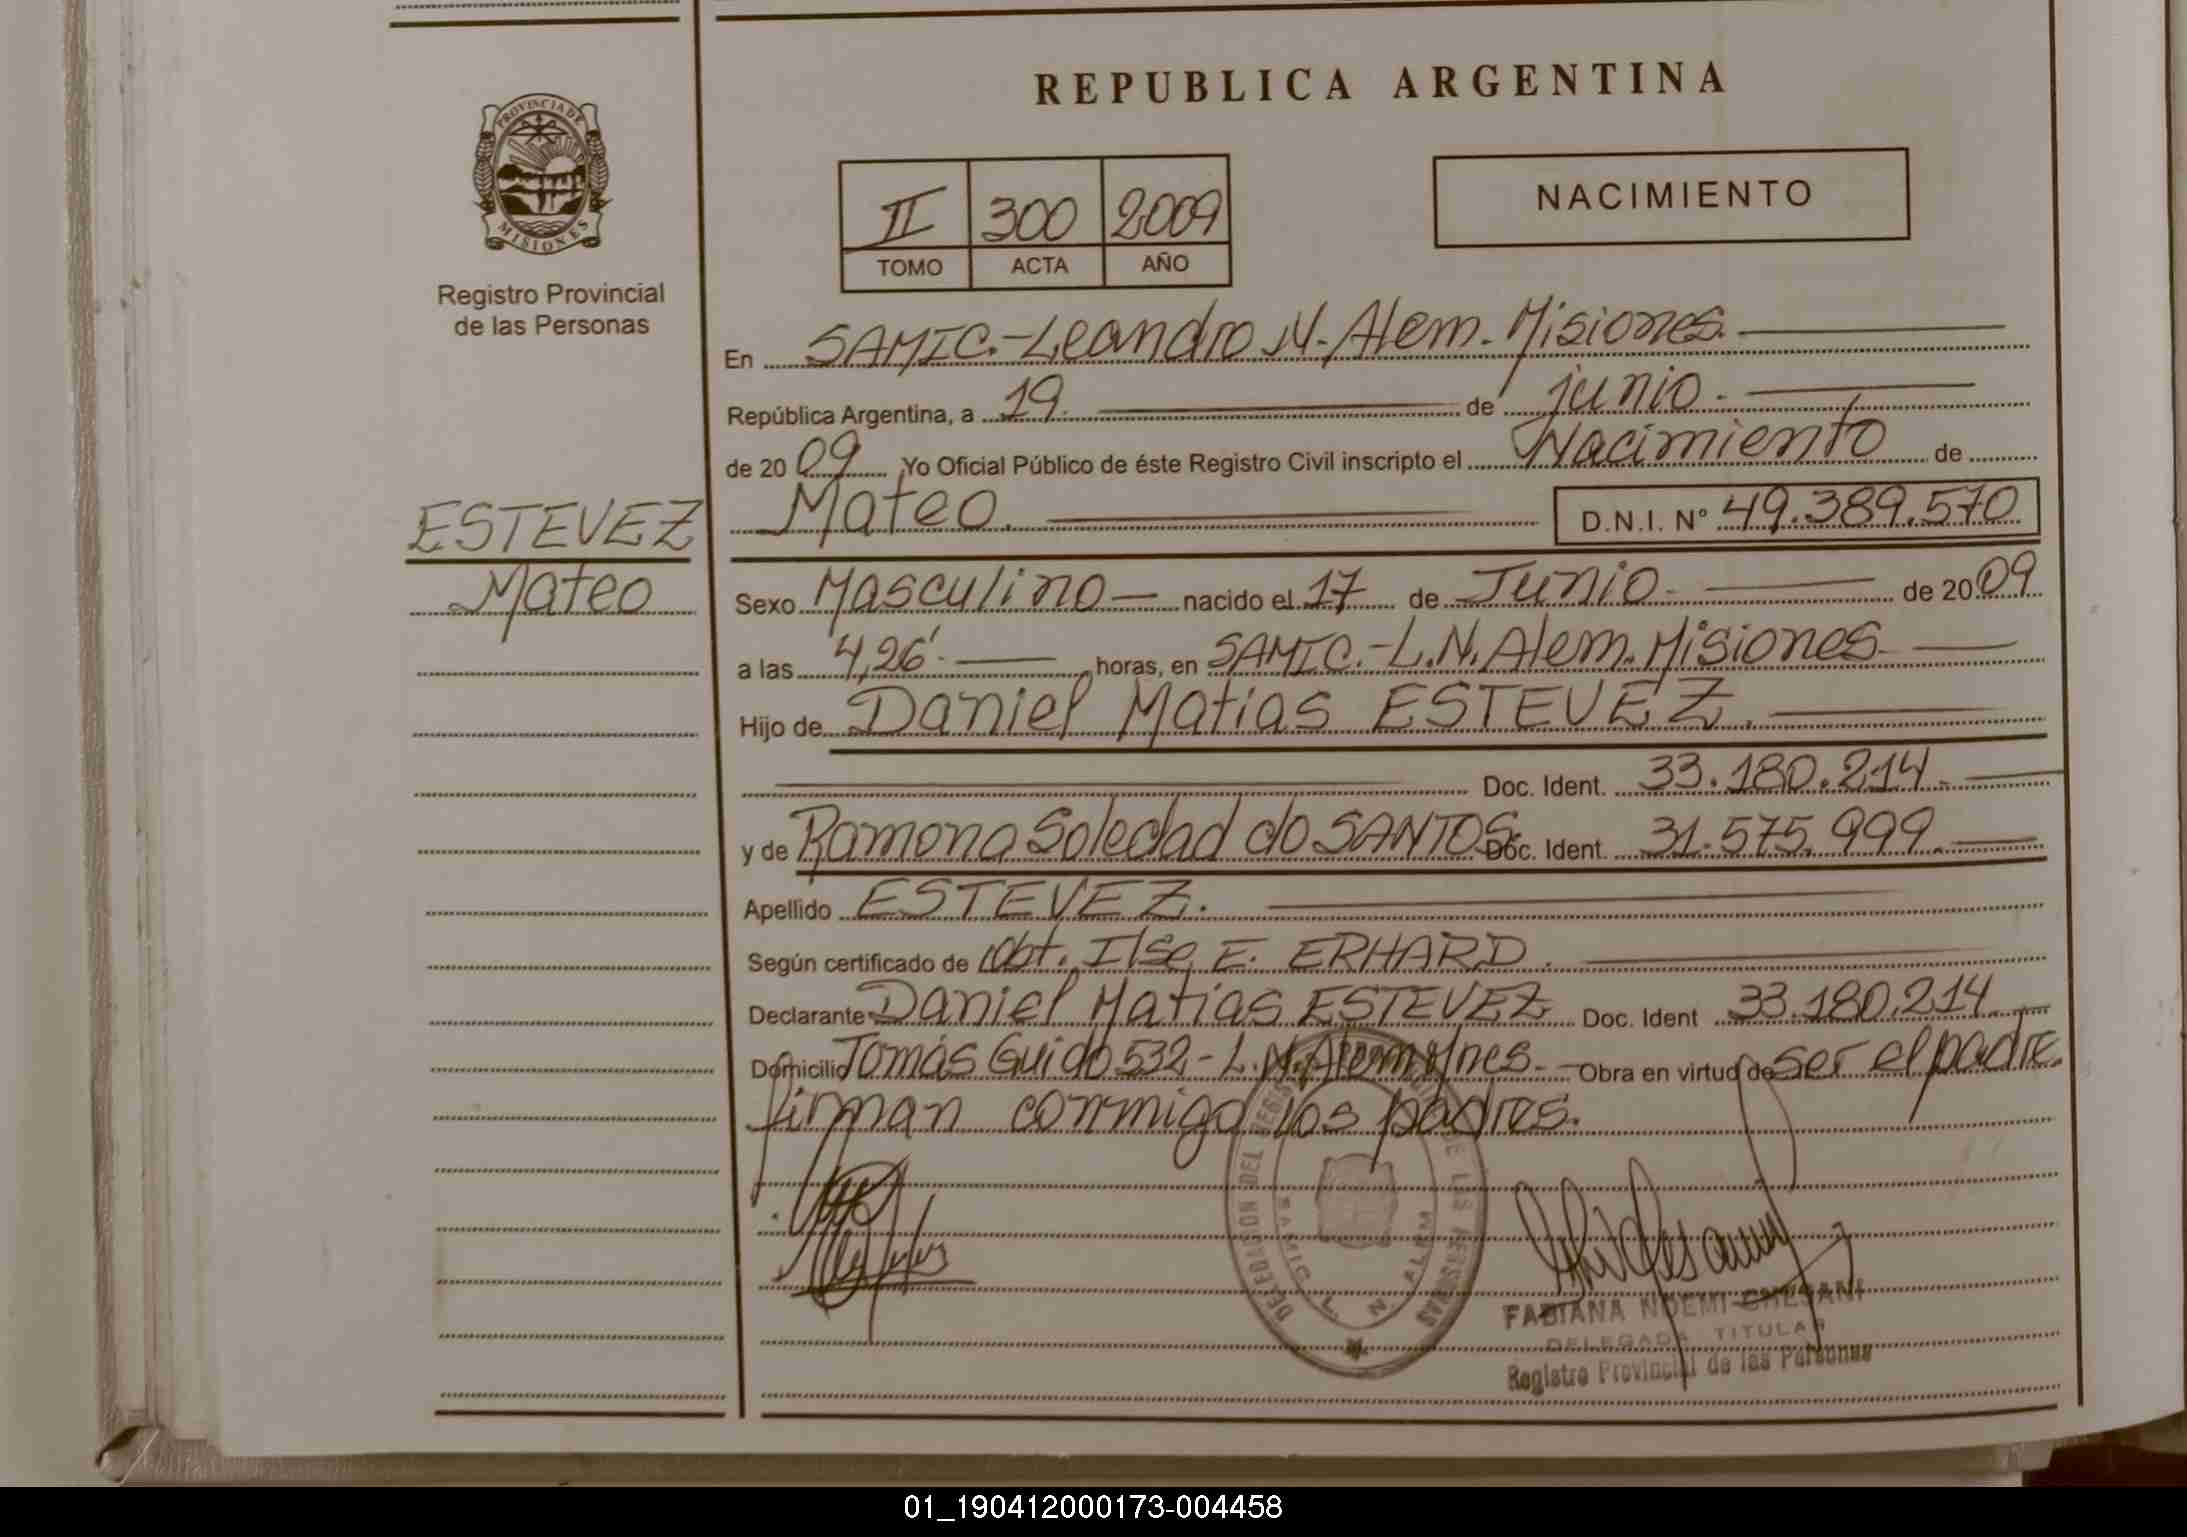 REPUBLICA ARGENTINA
PROVINCIA DE
MISIONES
Registro Provincial
de las Personas
II 300 2009
TOMO ACTA AÑO
NACIMIENTO
En SAMIC.-Leandro N. Alem. Misiones.
República Argentina, a 19. de junio.
de 2009 Yo Oficial Público de éste Registro Civil inscripto el Nacimiento de
Mateo. D.N.I. Nº 49.389.570
ESTEVEZ
Mateo
Sexo Masculino nacido el 17 de Junio. de 2009
a las 4,26' horas, en SAMIC.-L.N. Alem. Misiones.
Hijo de Daniel Matias ESTEVEZ.
Doc. Ident. 33.180.214.
y de Ramona Soledad do SANTOS Doc. Ident. 31.575.999.
Apellido ESTEVEZ.
Según certificado de Obt. Ilse E. ERHARD.
Declarante Daniel Matias ESTEVEZ Doc. Ident 33.180.214
Domicilio Tomás Guido 532-L.N. Alem Mnes. Obra en virtud de ser el padre.
firman conmigo los padres.
SAMIC L. N. ALEM
FABIANA NOEMI CHESANI
DELEGADA TITULAR
Registro Provincial de las Personas
01_190412000173-004458